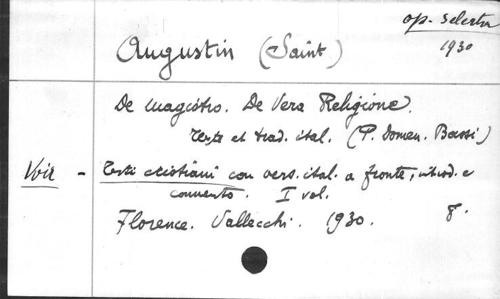 op. selecta
1930
Augustin (Saint)
De Magistro. De Vera Religione.
Texte et trad. ital. (P. Domen. Bassi)
Voir - Testi cristiani con vers. ital. a fronte, introd. e
commento. I vol.
Florence. Vallecchi. 1930. 8.